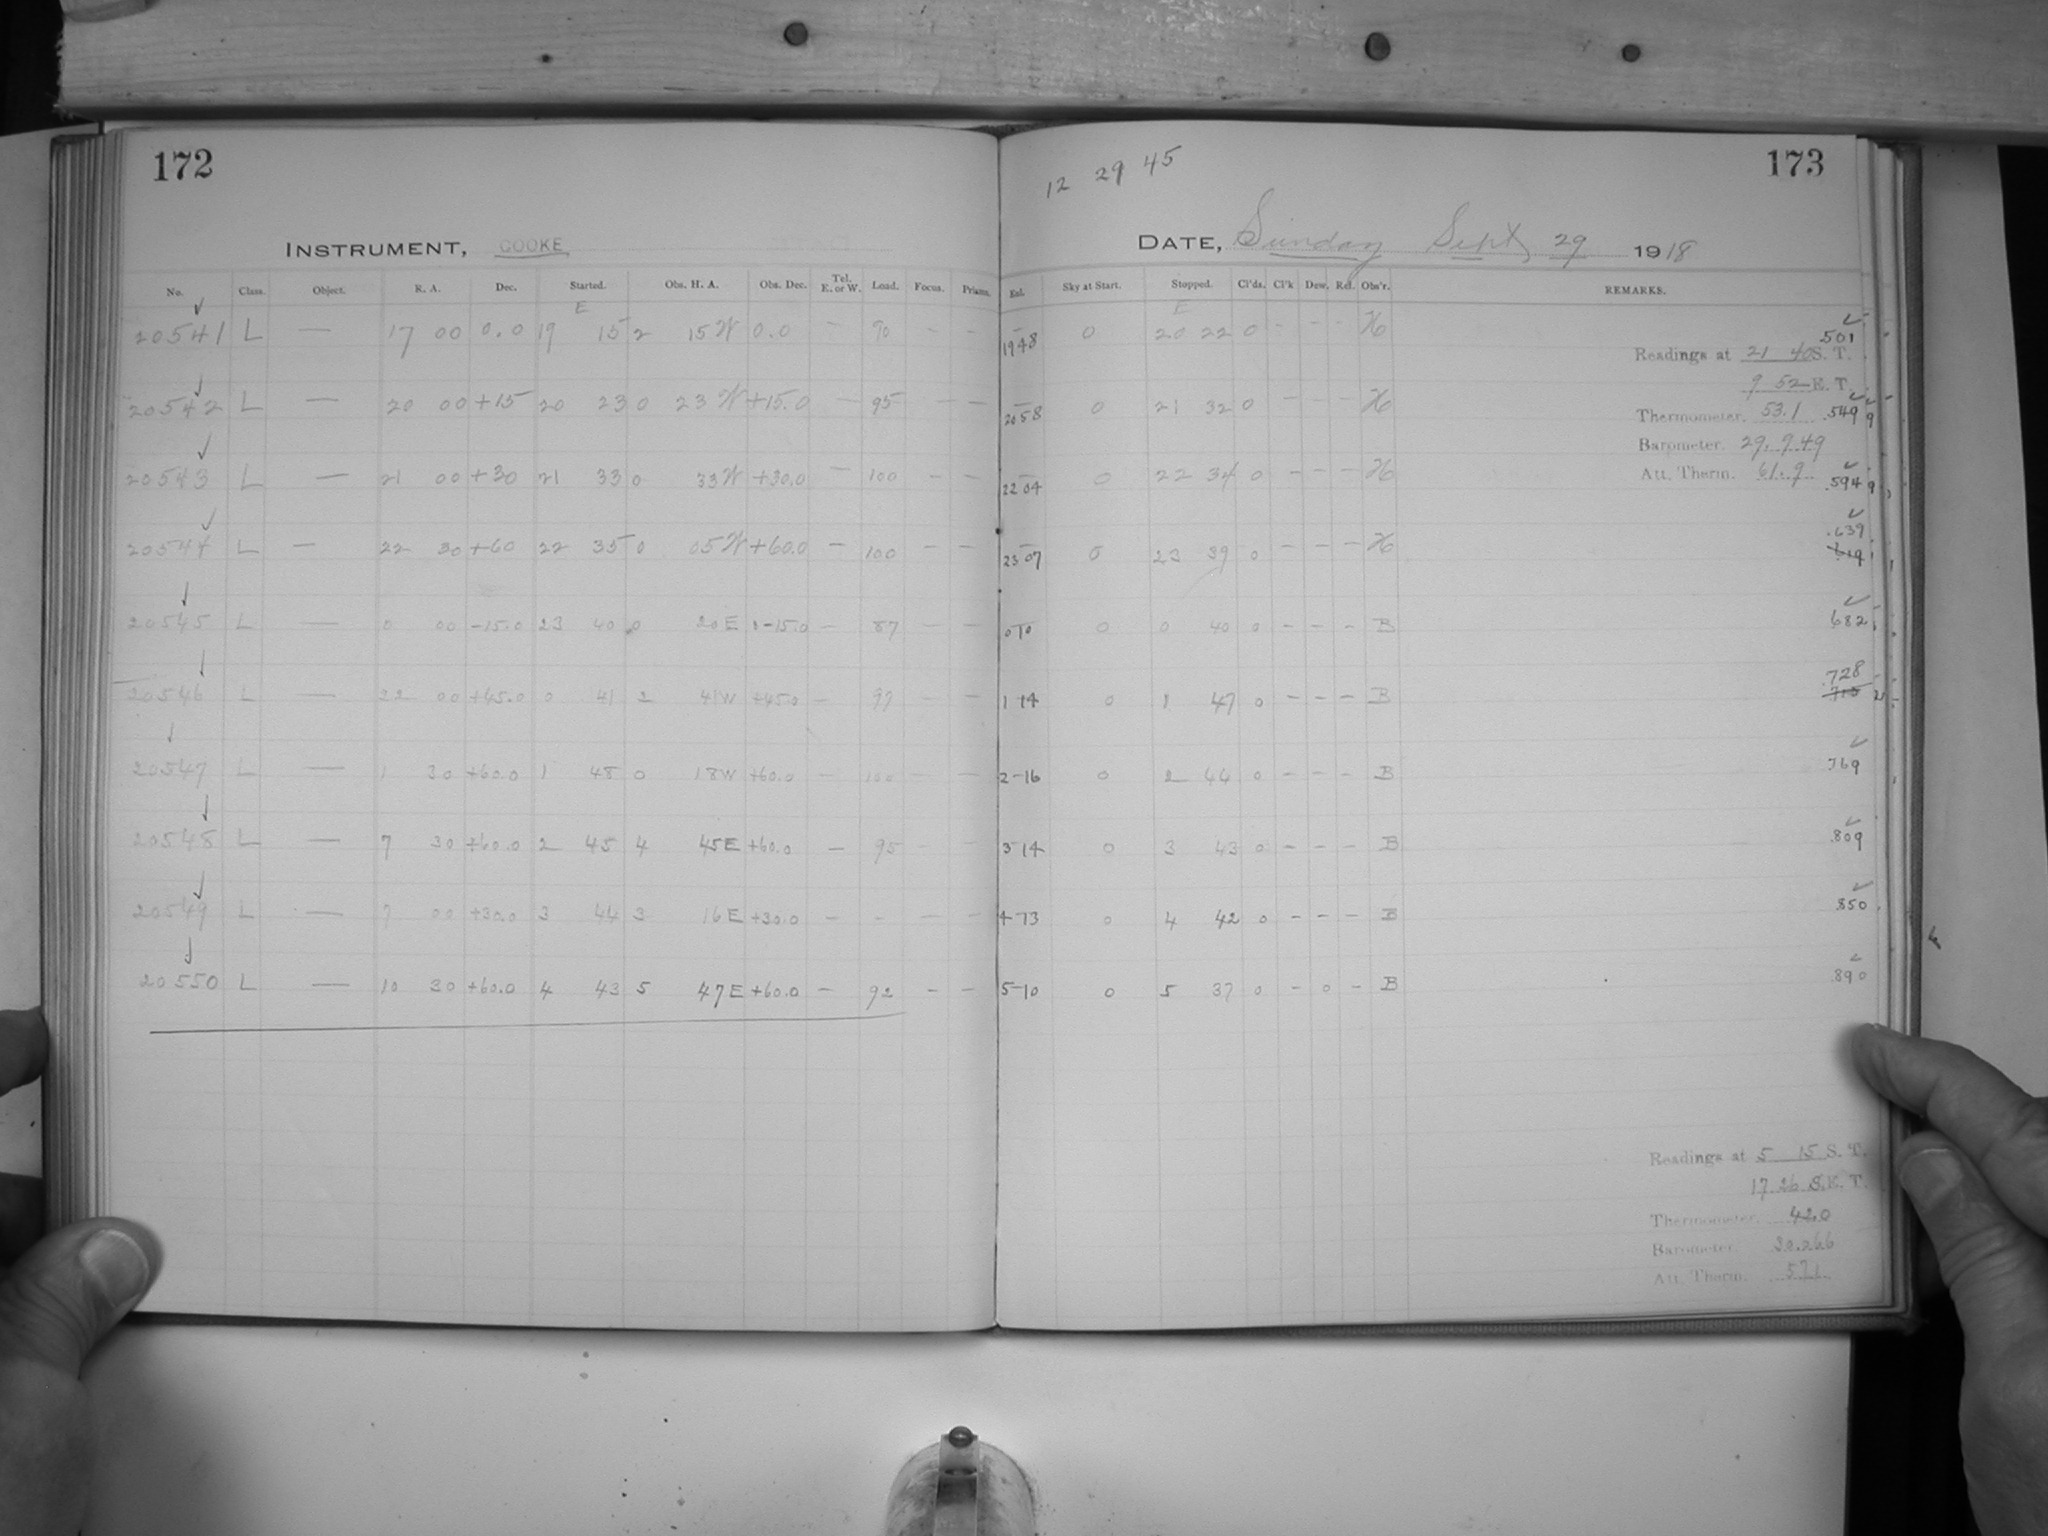 172
12 29 45
173
INSTRUMENT, COOKE
DATE, Sunday Sept 29 1918
No. Class. Object. R. A. Dec. Started. Obs. H. A. Obs. Dec. Tel. E. or W. Load. Focus. Prisms. Ext. Sky at Start. Stopped. Cl'ds. Cl'k Dew. Ref. Obs'r. REMARKS.
E E
20541 L — 17 00 0.0 19 15 2 15 W 0.0 — 90 — — 19 48 0 20 22 0 - - - H .501
Readings at 21 40 S. T.
9 52 E. T.
20542 L — 20 00 +15 20 23 0 23 W +15.0 — 95 — — 20 58 0 21 32 0 - - - H
Thermometer. 53.1 .549
Barometer. 29.949
20543 L — 21 00 +30 21 33 0 33 W +30.0 — 100 — — 22 04 0 22 34 0 - - - H
Att. Therm. 61.9 .594
20544 L — 22 30 +60 22 35 0 05 W +60.0 — 100 — — 23 07 0 23 39 0 - - - H .639
20545 L — 0 00 -15.0 23 40 0 20 E -15.0 — 87 — — 0 10 0 0 40 0 - - - B .682
20546 L — 22 00 +45.0 0 41 2 41 W +45.0 — 97 — — 1 14 0 1 47 0 - - - B .728
20547 L — 1 30 +60.0 1 48 0 18 W +60.0 — 100 — — 2-16 0 2 44 0 - - - B .769
20548 L — 7 30 +60.0 2 45 4 45 E +60.0 — 95 — — 3 14 0 3 43 0 - - - B .809
20549 L — 7 00 +30.0 3 44 3 16 E +30.0 - - — — 4 13 0 4 42 0 - - - B .850
20550 L — 10 30 +60.0 4 43 5 47 E +60.0 — 92 — — 5-10 0 5 37 0 - 0 - B .890
Readings at 5 15 S. T.
17 26 S.E. T.
Thermometer. 42.0
Barometer. 30.066
Att. Therm. 57.1